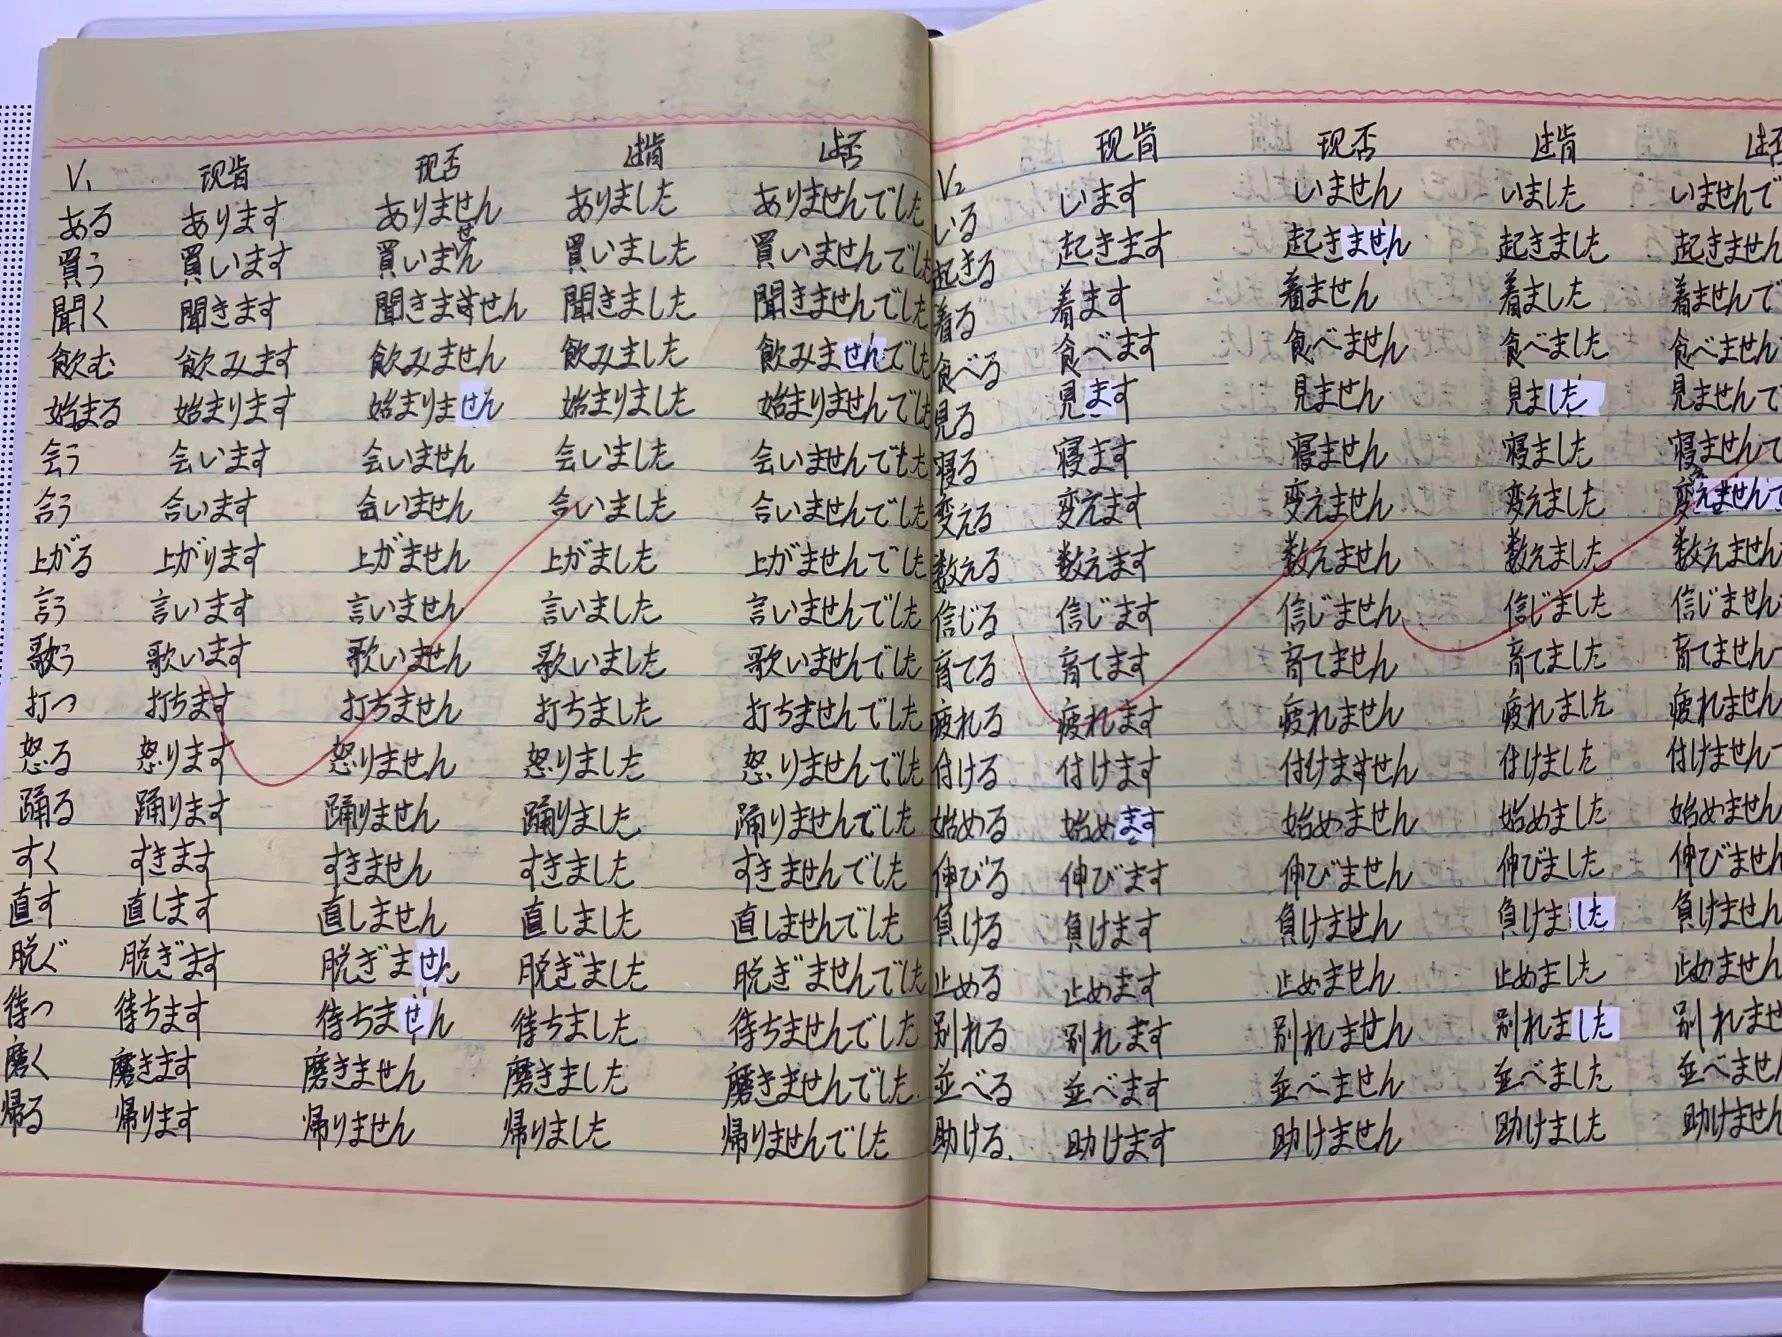 V₁ 现肯 现否 过肯 过否
ある あります ありません ありました ありませんでした
買う 買います 買いません 買いました 買いませんでした
聞く 聞きます 聞きますせん 聞きました 聞きませんでした
飲む 飲みます 飲みません 飲みました 飲みませんでした
始まる 始まります 始まりません 始まりました 始まりませんでした
会う 会います 会いません 会いました 会いませんでした
合う 合います 合いません 合いました 合いませんでした
上がる 上がります 上がません 上がました 上がませんでした
言う 言います 言いません 言いました 言いませんでした
歌う 歌います 歌いません 歌いました 歌いませんでした
打つ 打ちます 打ちません 打ちました 打ちませんでした
怒る 怒ります 怒りません 怒りました 怒りませんでした
踊る 踊ります 踊りません 踊りました 踊りませんでした
すく すきます すきません すきました すきませんでした
直す 直します 直しません 直しました 直しませんでした
脱ぐ 脱ぎます 脱ぎません 脱ぎました 脱ぎませんでした
待つ 待ちます 待ちません 待ちました 待ちませんでした
磨く 磨きます 磨きません 磨きました 磨きませんでした
帰る 帰ります 帰りません 帰りました 帰りませんでした
V₂ 现肯 现否 过肯 过否
いる います いません いました いませんで
起きる 起きます 起きません 起きました 起きません
着る 着ます 着ません 着ました 着ませんで
食べる 食べます 食べません 食べました 食べません
見る 見ます 見ません 見ました 見ませんで
寝る 寝ます 寝ません 寝ました 寝ませんで
変える 変えます 変えません 変えました 変えませんで
数える 数えます 数えません 数えました 数えません
信じる 信じます 信じません 信じました 信じません
育てる 育てます 育てません 育てました 育てません
疲れる 疲れます 疲れません 疲れました 疲れません
付ける 付けます 付けますせん 付けました 付けません
始める 始めます 始めません 始めました 始めません
伸びる 伸びます 伸びません 伸びました 伸びません
負ける 負けます 負けません 負けました 負けません
止める 止めます 止めません 止めました 止めません
別れる 別れます 別れません 別れました 別れませ
並べる 並べます 並べません 並べました 並べません
助ける. 助けます 助けません 助けました 助けません